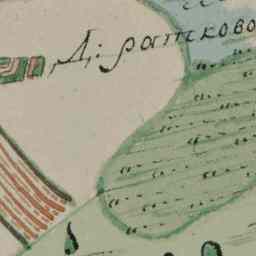 Д: ратково